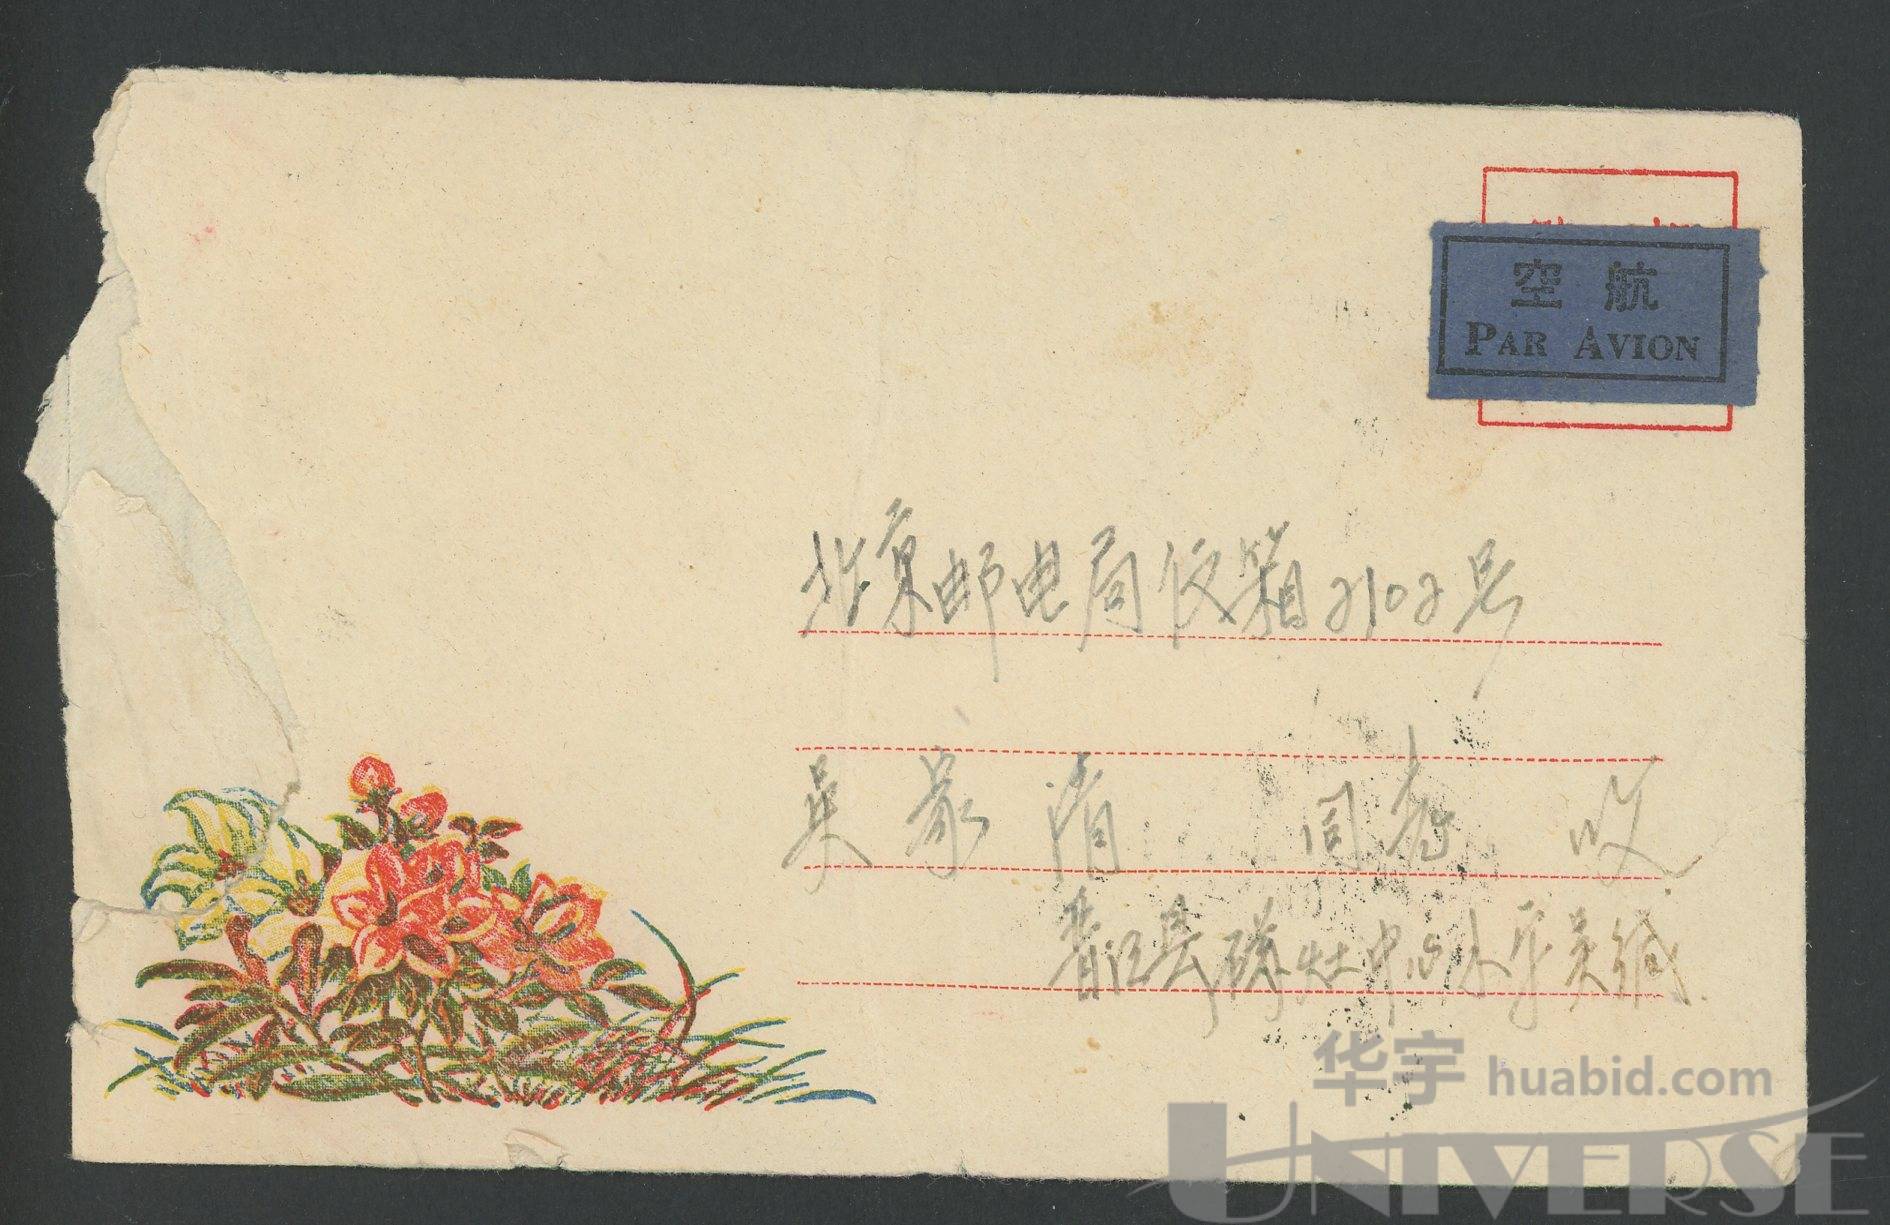 空航
PAR AVION
北京邮电局仪箱2102号
吴家清 同志 收
晋江县磁灶中心小 吴缄
华宇 huabid.com
UNIVERSE